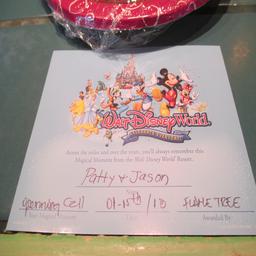 Walt Disney World
Across the miles and over the years, you'll always remember this
Magical Moment from the Walt Disney World Resort.
Patty & Jason
01-15th/10
FLAME TREE
Your Magical Moment
Date
Awarded By